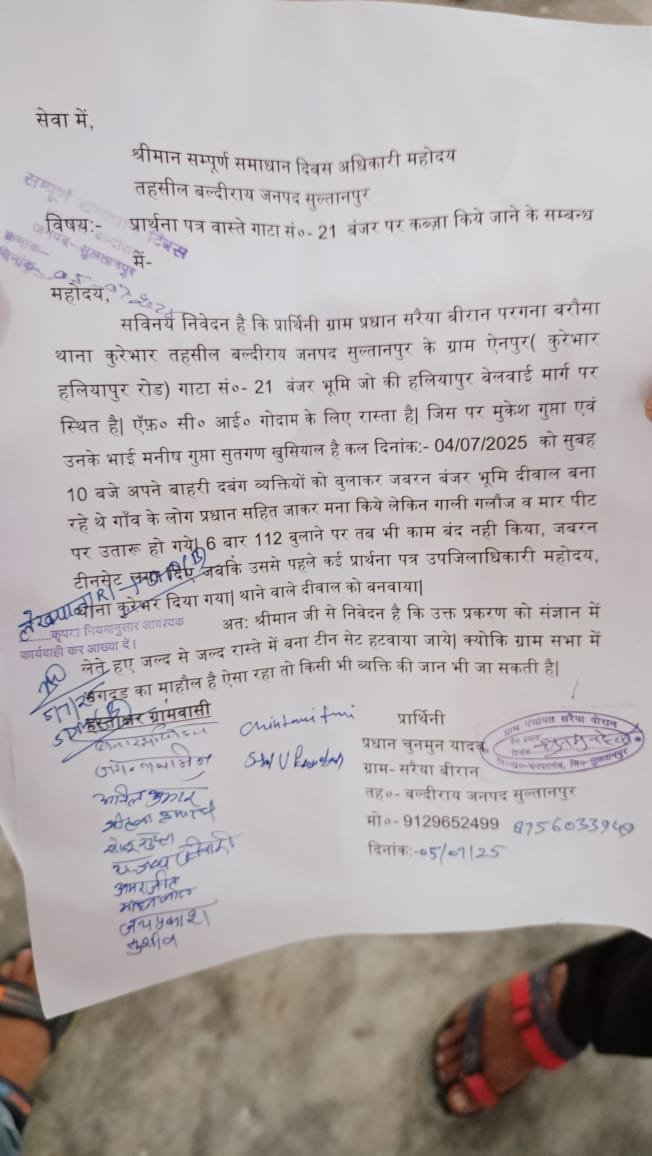 सेवा में,
श्रीमान सम्पूर्ण समाधान दिवस अधिकारी महोदय
तहसील बल्दीराय जनपद सुल्तानपुर
सम्पूर्ण समाधान दिवस
जनपद-सुलतानपुर
क्रमांक-
दिनांक-
विषय:- प्रार्थना पत्र वास्ते गाटा सं०- 21 बंजर पर कब्ज़ा किये जाने के सम्बन्ध
में-
महोदय,
सविनय निवेदन है कि प्रार्थिनी ग्राम प्रधान सरैया बीरान परगना बरौसा
थाना कुरेभार तहसील बल्दीराय जनपद सुल्तानपुर के ग्राम ऐनपुर( कुरेभार
हलियापुर रोड) गाटा सं०- 21 बंजर भूमि जो की हलियापुर बेलवाई मार्ग पर
स्थित है| ऍफ़० सी० आई० गोदाम के लिए रास्ता है| जिस पर मुकेश गुप्ता एवं
उनके भाई मनीष गुप्ता सुतगण खुसियाल है कल दिनांक:- 04/07/2025 को सुबह
10 बजे अपने बाहरी दबंग व्यक्तियों को बुलाकर जबरन बंजर भूमि दीवाल बना
रहे थे गाँव के लोग प्रधान सहित जाकर मना किये लेकिन गाली गलौज व मार पीट
पर उतारू हो गये| 6 बार 112 बुलाने पर तब भी काम बंद नही किया, जबरन
टीनसेट दिए जबकि उससे पहले कई प्रार्थना पत्र उपजिलाधिकारी महोदय,
थाना कुरेभर दिया गया| थाने वाले दीवाल को बनवाया|
कृपया नियमानुसार आवश्यक
कार्यवाही कर आख्या दें।
अत: श्रीमान जी से निवेदन है कि उक्त प्रकरण को संज्ञान में
लेते हुए जल्द से जल्द रास्ते में बना टीन सेट हटवाया जाये| क्योकि ग्राम सभा में
का माहौल है ऐसा रहा तो किसी भी व्यक्ति की जान भी जा सकती है|
5/7/25
हस्ताक्षर ग्रामवासी
प्रार्थिनी
ग्राम पंचायत सरैया बीरान
प्रधान चुनमुन यादव
ग्राम- सरैया बीरान
तह०- बल्दीराय जनपद सुल्तानपुर
मो०- 9129652499 8756033949
दिनांक:-05/07/25
अमरजीत
जयप्रकाश